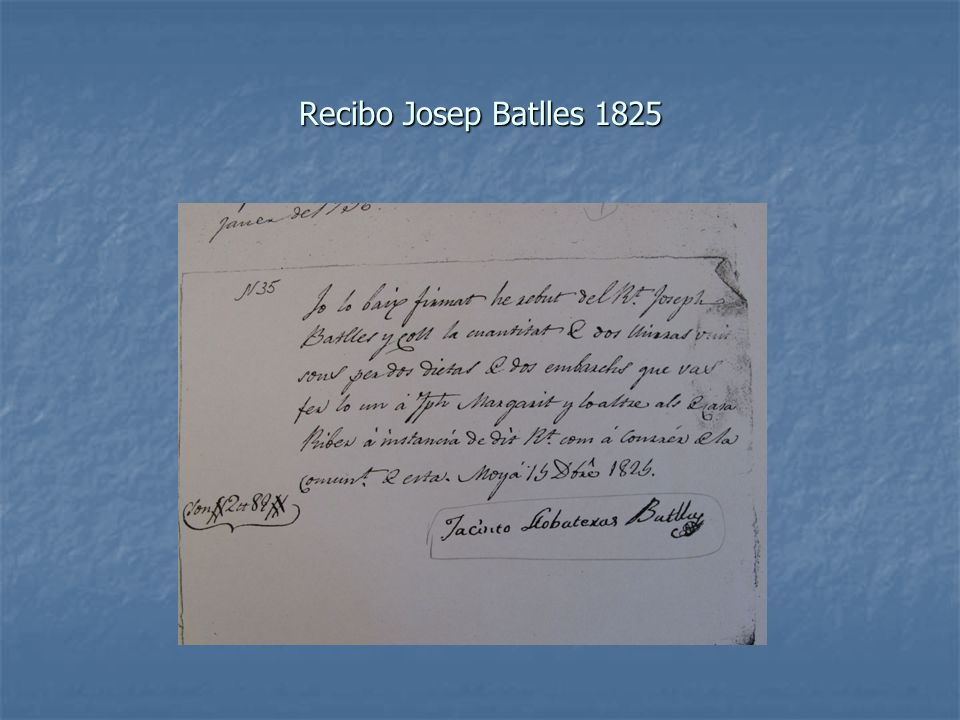 Recibo Josep Batlles 1825
janer del
N 35
Jo lo baix firmat he rebut del Rt. Joseph
Batlles y Coll la cuantitat de dos lliuras vuit
sous per dos dietas de dos embarchs que vas
fer lo un á Jph Margarit y lo altre als de Casa
Riber á instancia de dit Rt. com á Correr de la
comunt. de esta. Moyá 15 Dbre 1825.
Son 2 8
Jacinto Llobateras Batlle